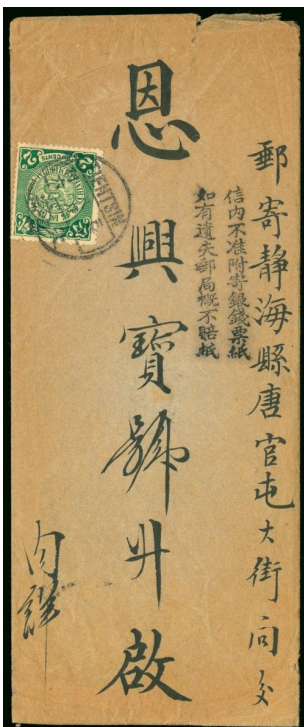 郵寄静海縣唐官屯大街向交
信內不准附寄銀錢票紙
如有遺失郵局概不賠紙
恩興寶號升啟
內詳
TIENTSIN
2
CENTS
2